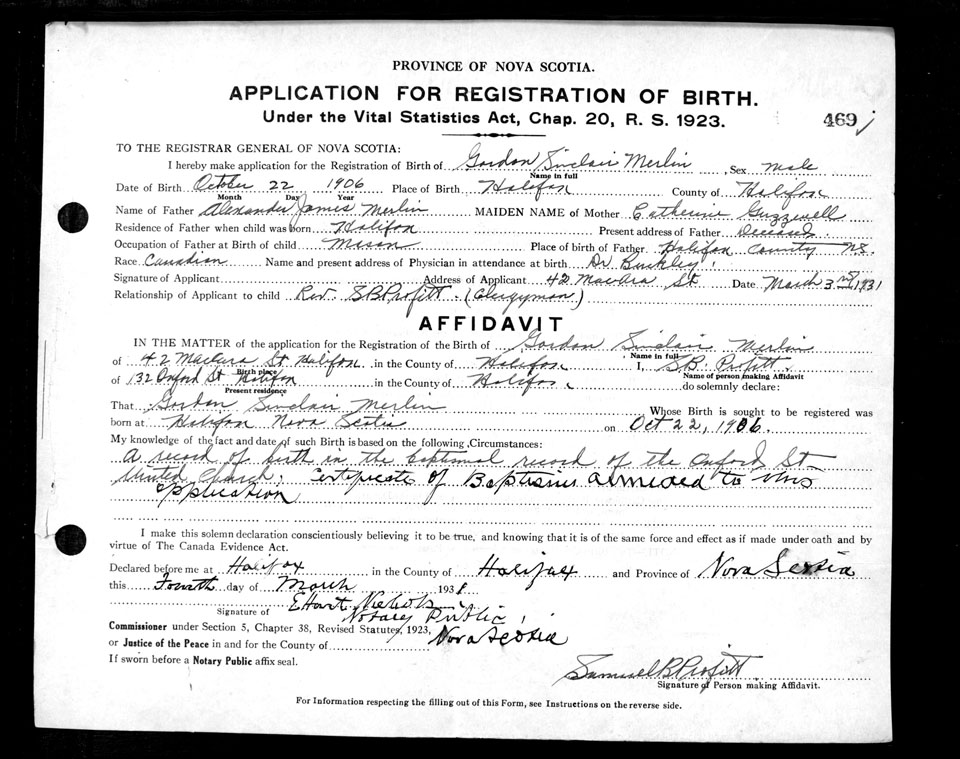 PROVINCE OF NOVA SCOTIA.
APPLICATION FOR REGISTRATION OF BIRTH.
Under the Vital Statistics Act, Chap. 20, R. S. 1923.
469 j
TO THE REGISTRAR GENERAL OF NOVA SCOTIA:
I hereby make application for the Registration of Birth of Gordon Sinclair Merlin Sex male
Name in full
Date of Birth October 22 1906 Place of Birth Halifax County of Halifax
Month Day Year
Name of Father Alexander James Merlin MAIDEN NAME of Mother Catherine Guzzwell
Residence of Father when child was born Halifax Present address of Father Deceased.
Occupation of Father at Birth of child Mason Place of birth of Father Halifax County NS.
Race Canadian Name and present address of Physician in attendance at birth Dr Buckley.
Signature of Applicant Address of Applicant 42 St Date March 3rd 1931
Relationship of Applicant to child Rev. S B Profitt. (Clergyman)
AFFIDAVIT
IN THE MATTER of the application for the Registration of the Birth of Gordon Sinclair Merlin
Name in full
of 42 St Halifax in the County of Halifax I, S B Profitt.
Birth place Name of person making Affidavit
of 132 Oxford St Halifax in the County of Halifax. do solemnly declare:
Present residence
That Gordon Sinclair Merlin Whose Birth is sought to be registered was
born at Halifax Nova Scotia on Oct 22, 1906.
My knowledge of the fact and date of such Birth is based on the following Circumstances:
A record of birth in the baptismal record of the Oxford St
United Church. Certificate of Baptism annexed to this
application
I make this solemn declaration conscientiously believing it to be true, and knowing that it is of the same force and effect as if made under oath and by
virtue of The Canada Evidence Act.
Declared before me at Halifax in the County of Halifax and Province of Nova Scotia
this Fourth day of March 1931
E Hart Nichols
Signature of Notary Public
Commissioner under Section 5, Chapter 38, Revised Statutes, 1923,
or Justice of the Peace in and for the County of Nova Scotia
If sworn before a Notary Public affix seal.
Samuel B Profitt
Signature of Person making Affidavit.
For Information respecting the filling out of this Form, see Instructions on the reverse side.